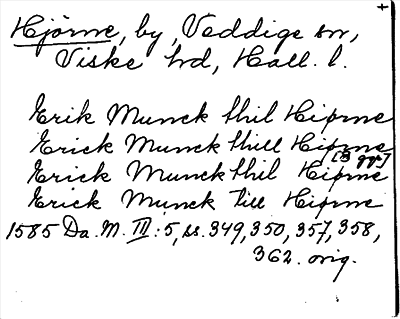 Hjörne, by, Veddige sn,
Viske hd, Hall. l.
Erik Munck thil Hiørne
Erick Munck thiill Hiørne
[3 ggr]
Erick Munck thil Hiørne
Erick Munck till Hiørne
1585 Da. M. III: 5, ss. 349, 350, 357, 358,
362. orig.